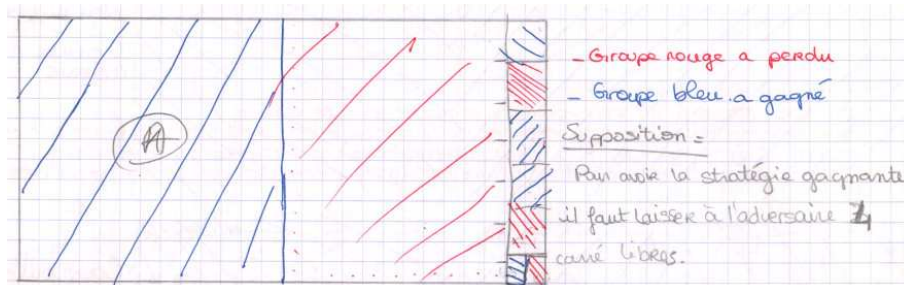 A
- Groupe rouge a perdu
- Groupe bleu a gagné
Supposition =
Pour avoir la stratégie gagnante
il faut laisser à l'adversaire 4
carré libres.